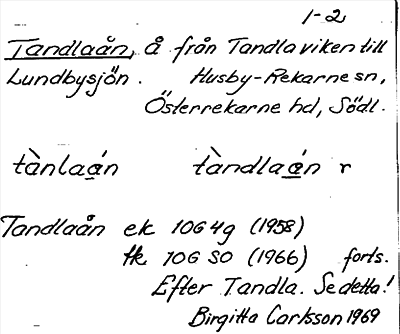 1-2
Tandlaån, å från Tandlaviken till
Lundbysjön. Husby-Rekarne sn,
Österrekarne hd, Södl.
tànlaá̲n tàndlaá̲n r
Tandlaån ek 10G4g (1958)
tk 10G SO (1966) forts.
Efter Tandla. Se detta!
Birgitta Carlsson 1969